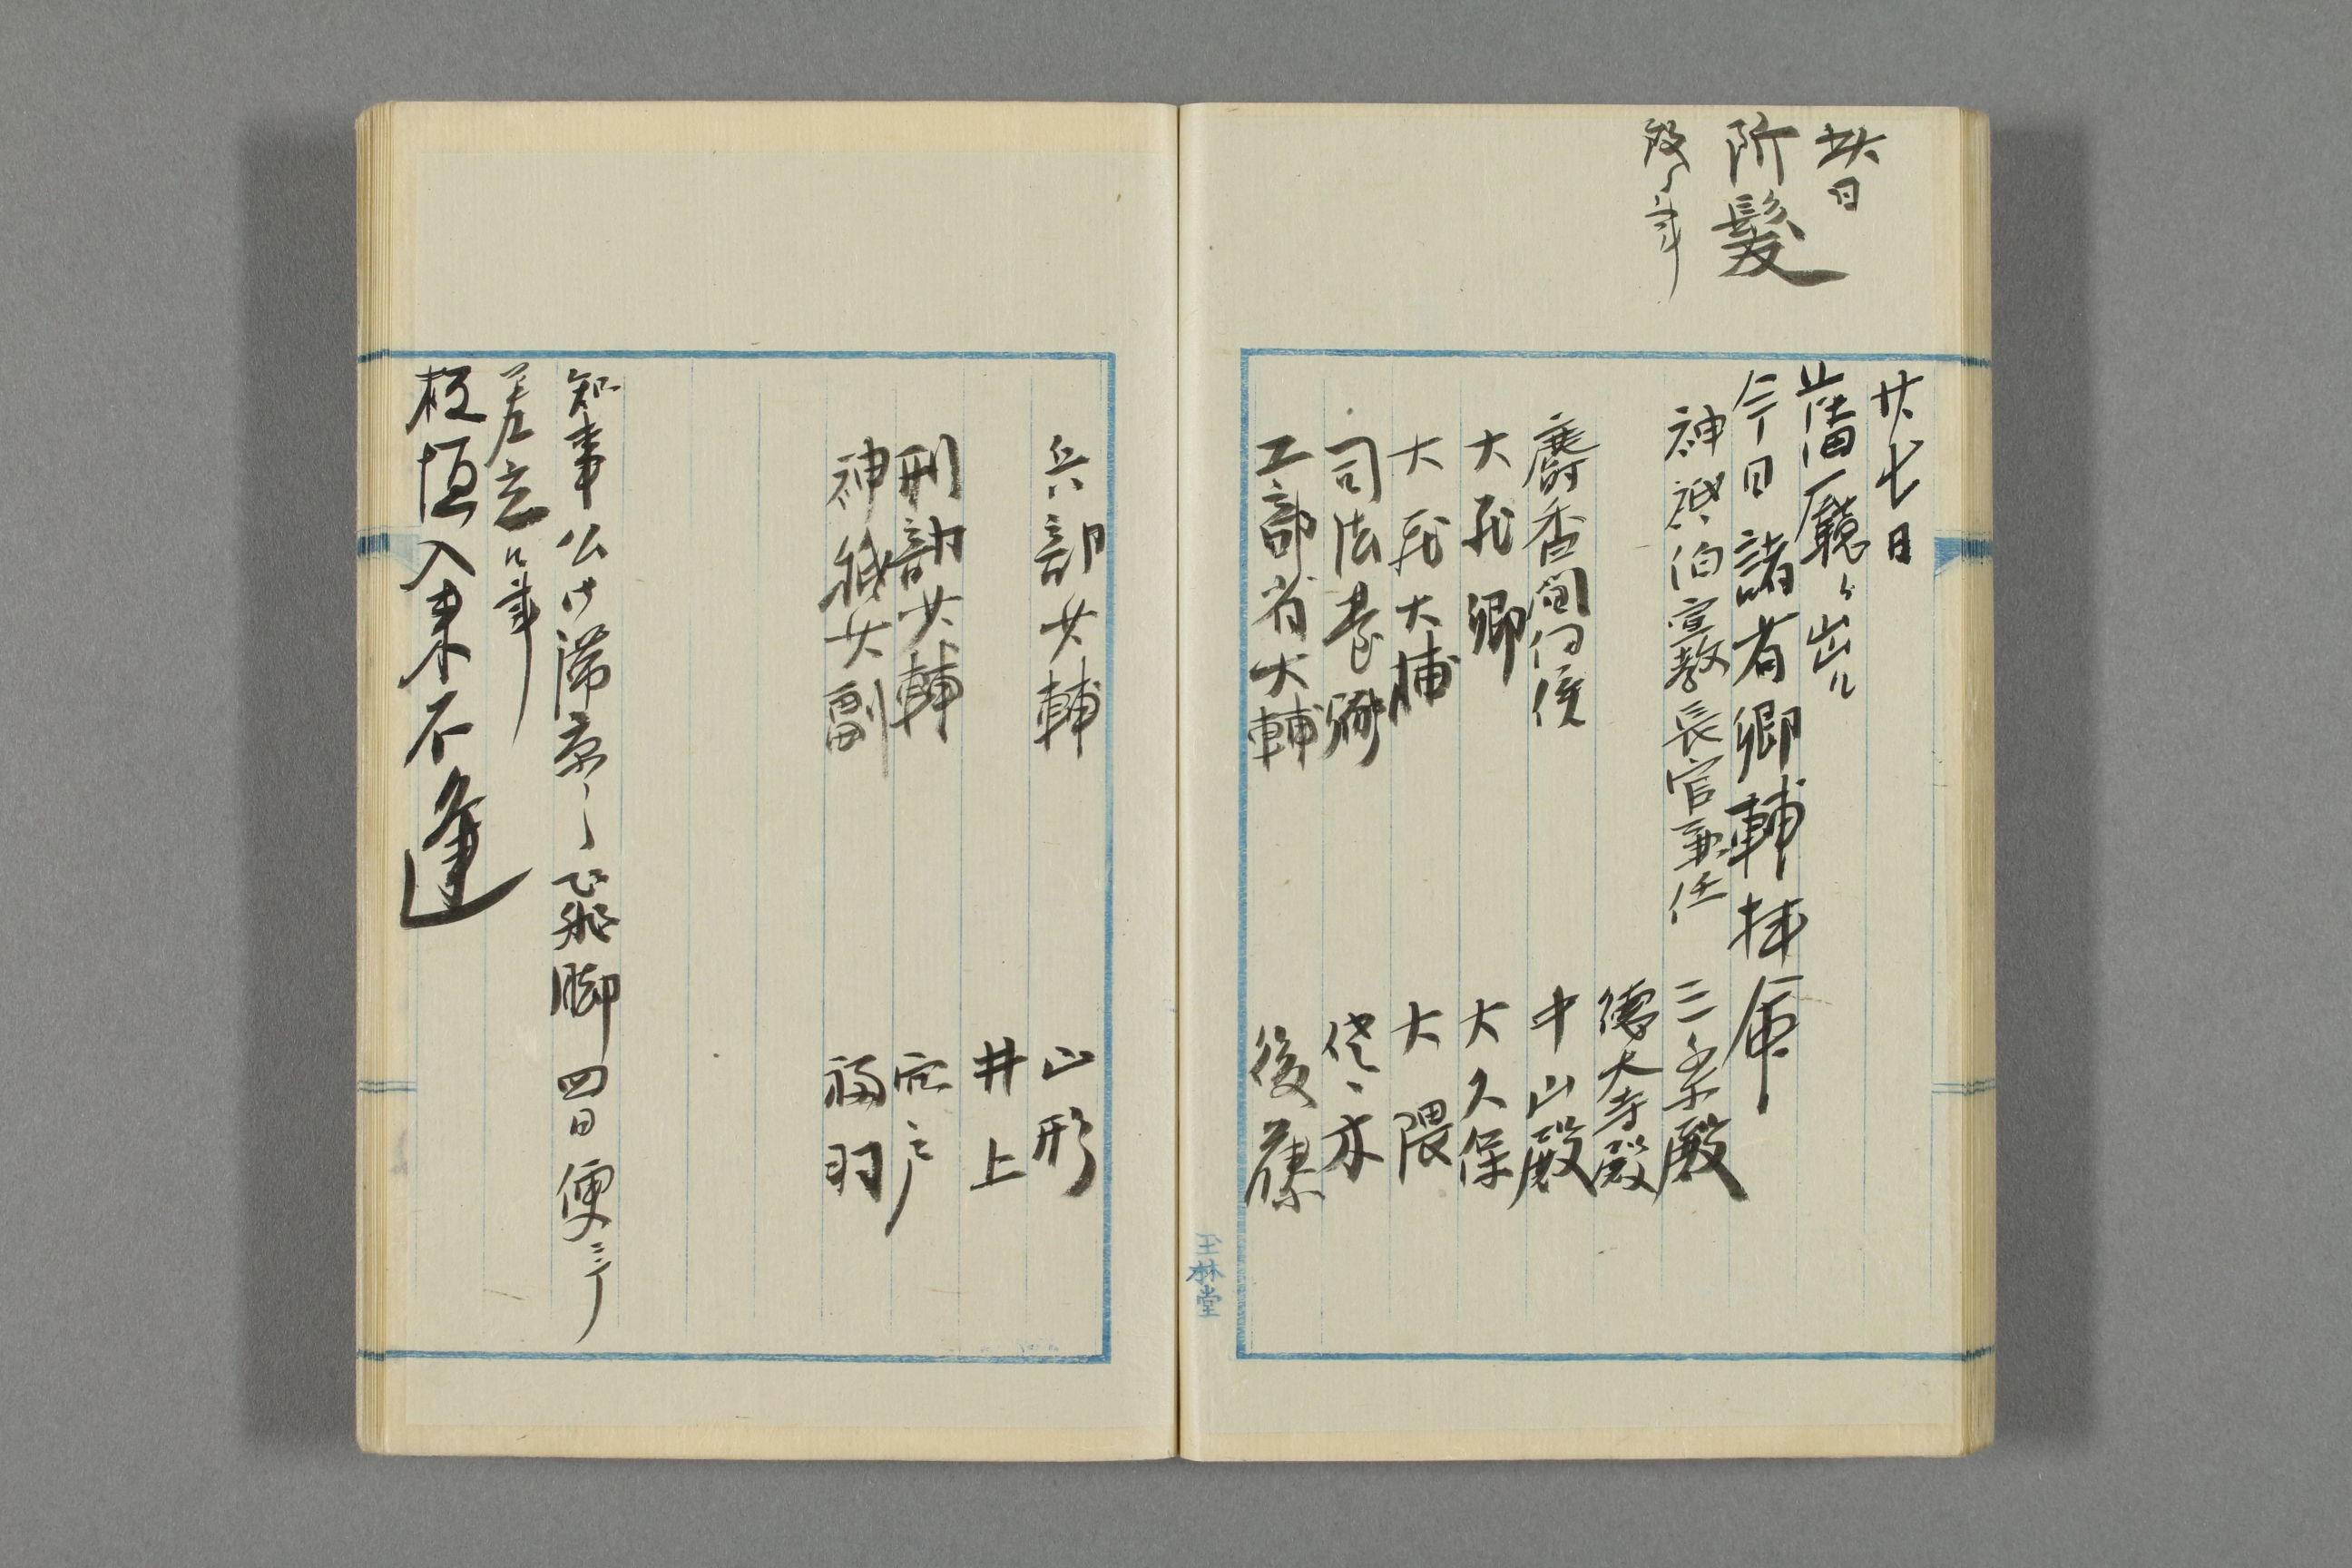 廿七日
藩廳ヘ出ル
今日諸省卿輔拝命
神祇伯宣教長官兼任 三条殿
徳大寺殿
麝香間伺候 中山殿
大蔵卿 大久保
大蔵大輔 大隈
司法 佐々木
工部省大輔 後藤
廿七日
断髪
致ス事
玉林堂
兵部少輔 山形
井上
刑部少輔 宍戸
神祇少副 福羽
知事公御滞京之飛脚四日便ニテ
差立ル事
板垣入来不逢